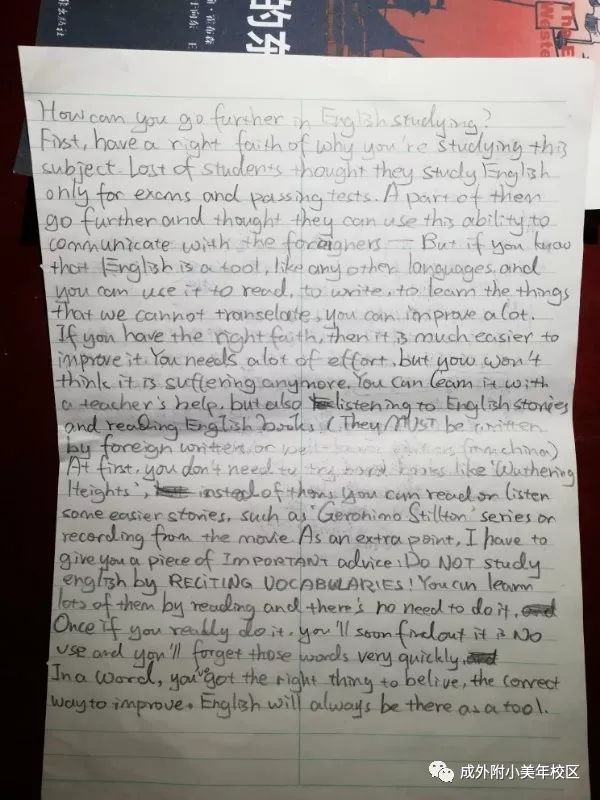 翰·霍布森
于向东 王
的东
The E
Weste
How can you go further in English studying?
First, have a right faith of why you're studying this
subject. Lost of students thought they study English
only for exams and passing tests. A part of then
go further and thought they can use this ability to
communicate with the foreigners. But if you know
that English is a tool, like any other languages, and
you can use it to read, to write, to learn the things
that we cannot transelate, you can improve a lot.
If you have the right faith, then it is much easier to
improve it. You needs a lot of effort, but you won't
think it is suffering anymore. You can learn it with
a teacher's help, but also listening to English stories
and reading English books (They MUST be written
by foreign writers or from china)
At first, you don't need to try hard books like 'Wuthering
Heights', insted of thems you can read or listen
some easier stories, such as 'Geronimo Stillton' series or
recording from the movie. As an extra point, I have to
give you a piece of IMPORTANT advice: DO NOT study
english by RECITING VOCABULARIES! You can learn
lots of them by reading and there's no need to do it.
Once if you really do it, you'll soon find out it is NO
use and you'll forget those words very quickly.
In a word, you've got the right thing to belive, the correct
way to improve. English will always be there as a tool.
成外附小美年校区